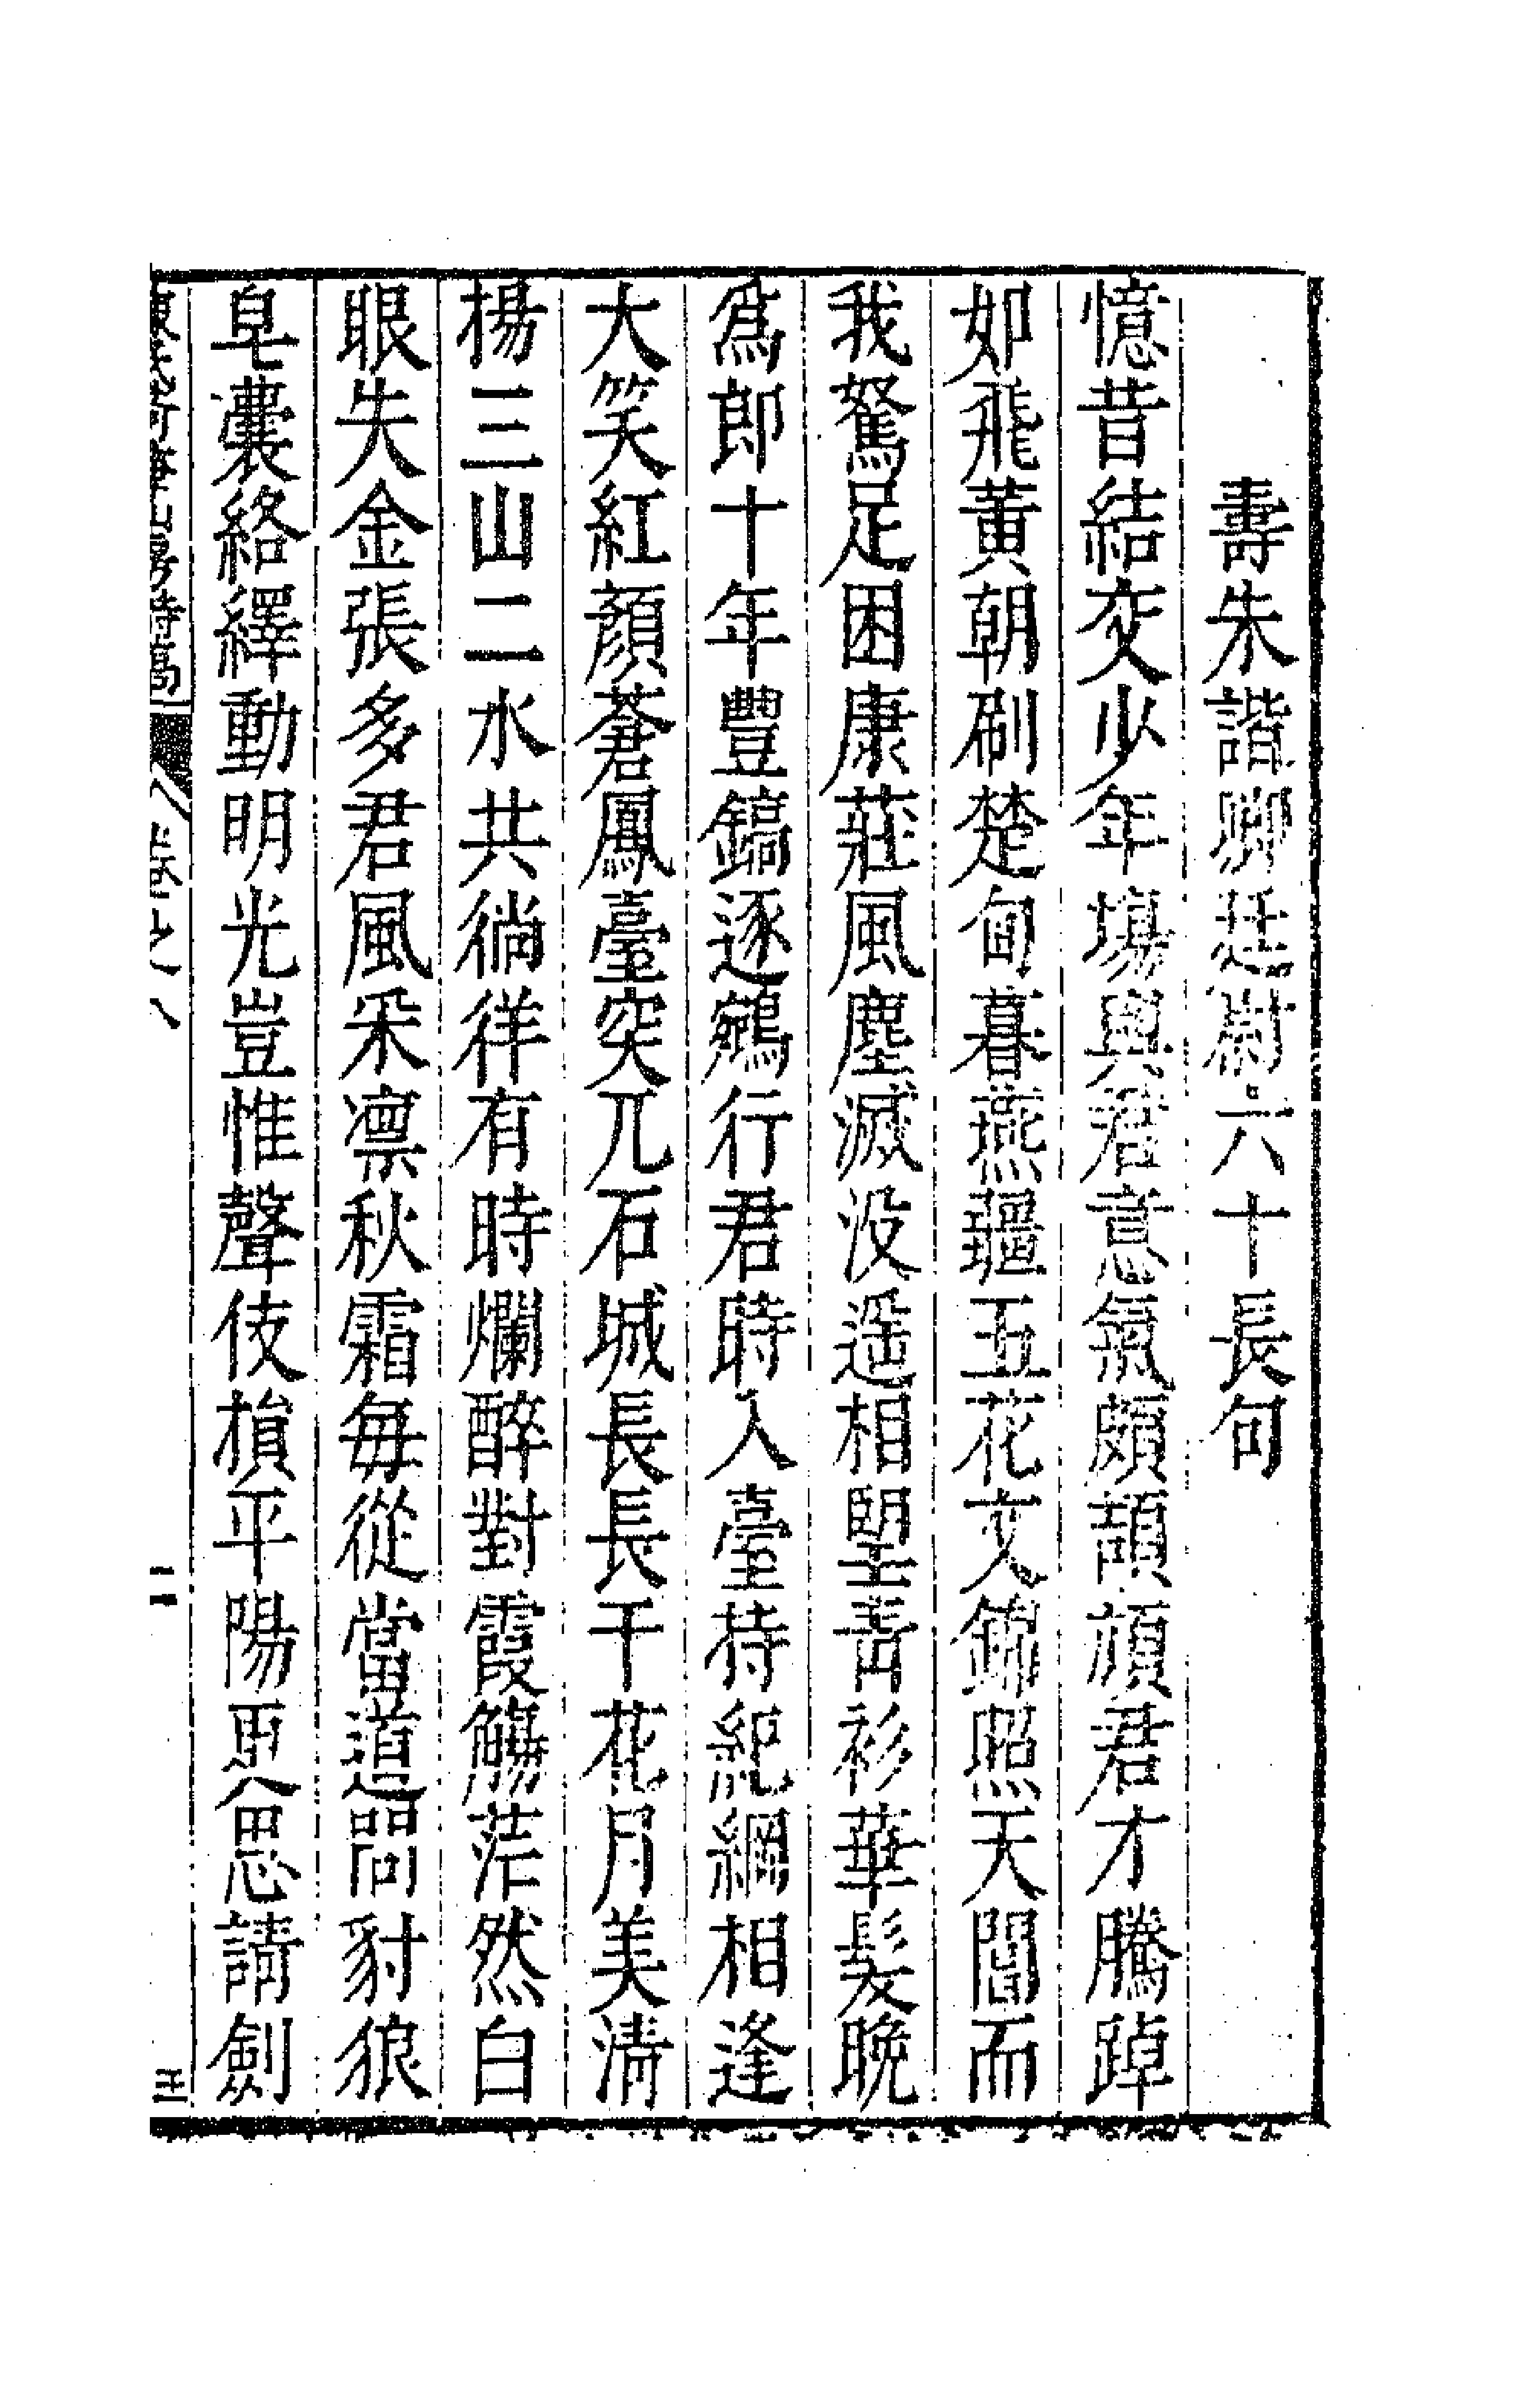 壽朱諧卿廷尉六十長句
憶昔結交少年塲與君意氣頗頡頏君才騰踔
如飛黃朝刷楚甸暮燕疆五花文錦照天閶而
我駑足困康莊風塵滅沒遥相望青衫華髮晚
爲郎十年豐鎬逐鵷行君時入臺持紀綱相逢
大笑紅顏蒼鳳臺突兀石城長長干花月美清
楊三山二水共徜徉有時爛醉對霞觴茫然白
眼失金張多君風采凛秋霜每從當道問豺狼
皂囊絡繹動明光豈惟聲伎損平陽更思請劍
山房詩稿 卷之八 二 王